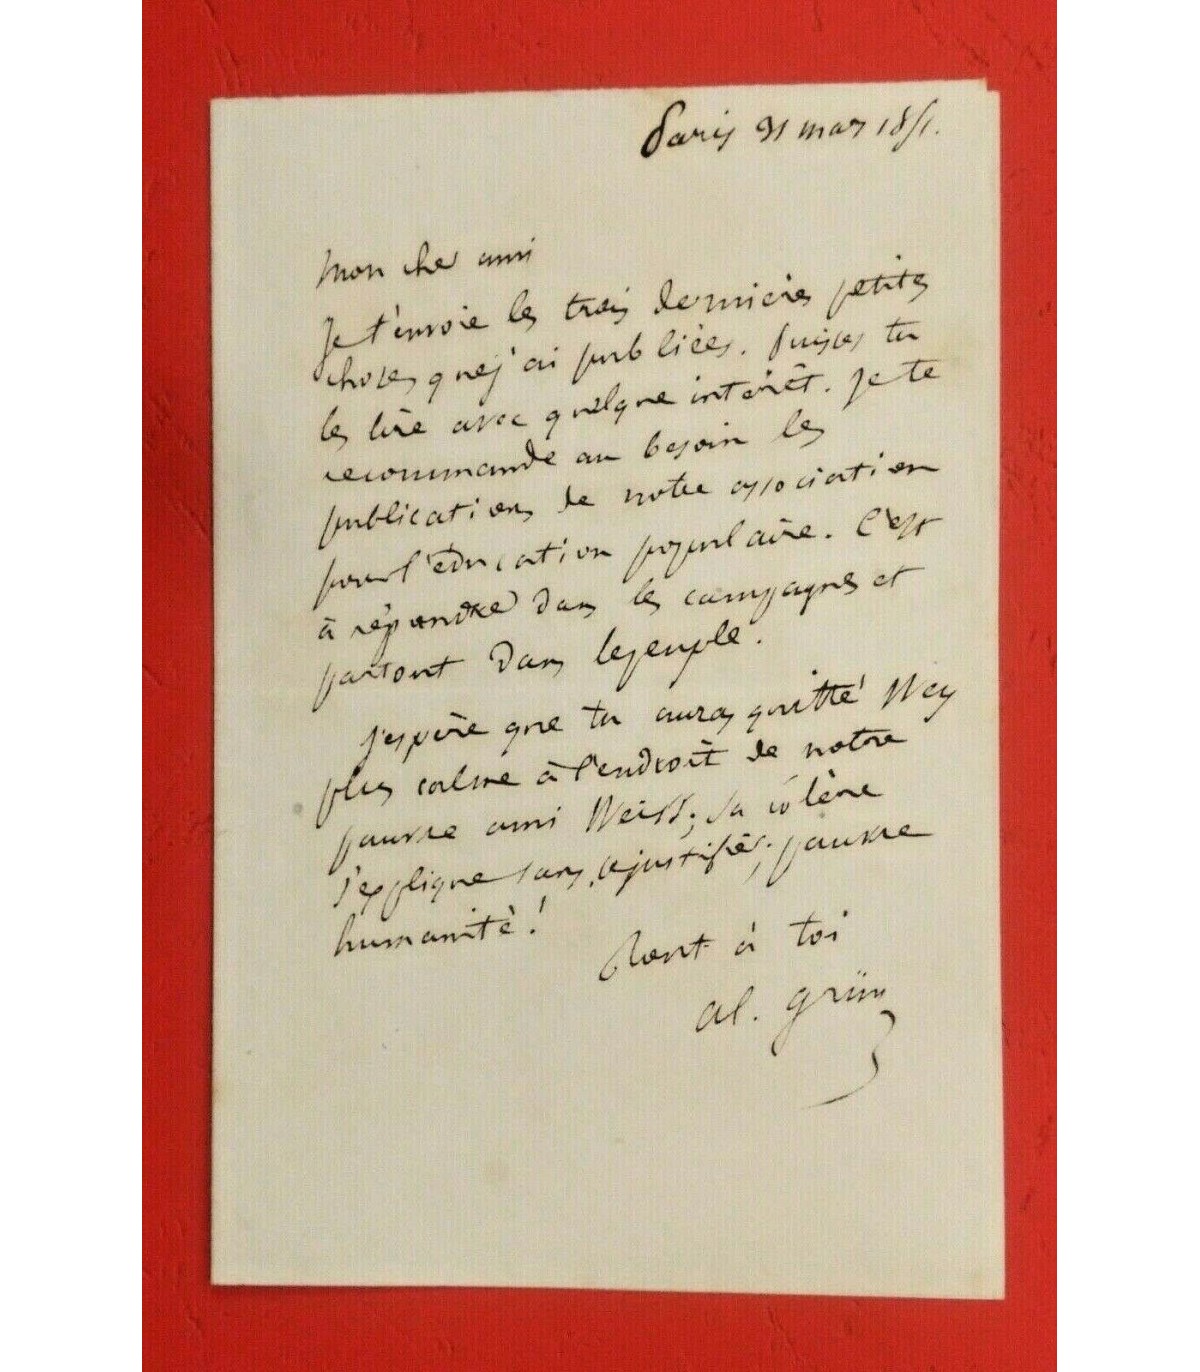 Paris 31 mars 1851.
Mon cher ami
Je t'envoie les trois dernières petites
choses que j'ai publiées. Puisses tu
les lire avec quelque intérêt. Je te
recommande au besoin les
publications de notre association
pour l'éducation populaire. C'est
à répandre dans les campagnes et
partout dans le peuple.
J'espère que tu auras quitté Wey
plus calme à l'endroit de notre
pauvre ami Weiss; sa colère
s'explique sans se justifier; pauvre
humanité!
tout à toi
al. grün